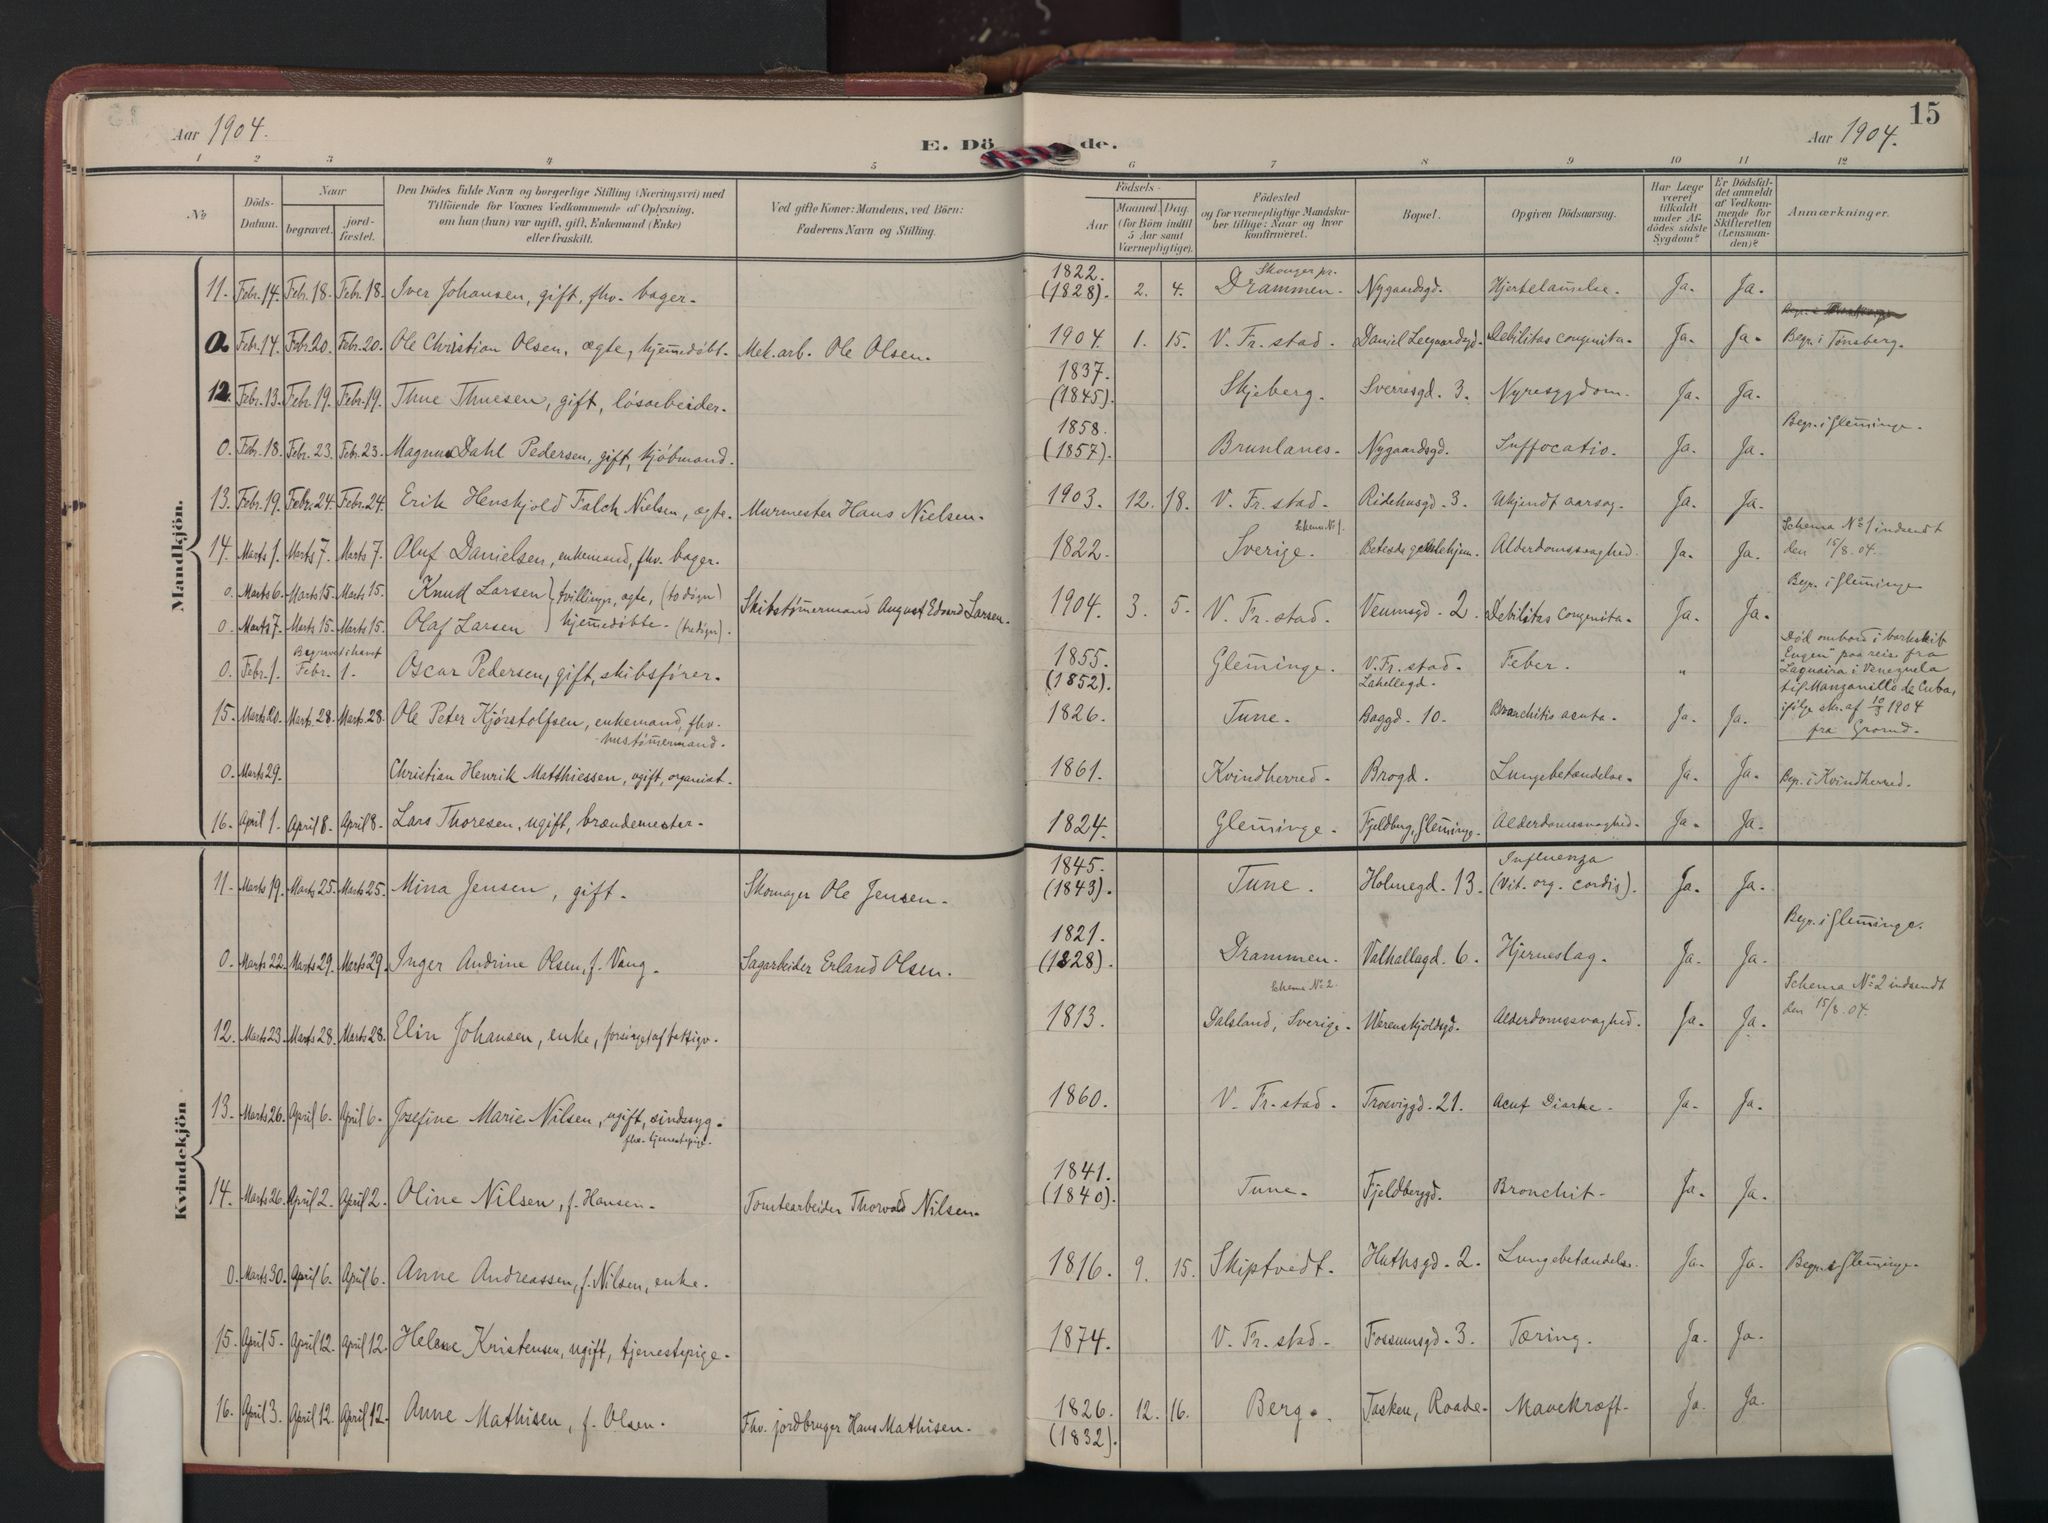 15
Aar 1904.
E. Dö
de.
Aar 1904.
1 2 3 4 5 6 7 8 9 10 11 12
No
Döds-Datum.
Naar
begravet.
jord-fæstet.
Den Dödes fulde Navn og borgerlige Stilling (Næringsvei) med
Tilföiende for Voxnes Vedkommende af Oplysning,
om han (hun) var ugift, gift, Enkemand (Enke)
eller fraskilt.
Ved gifte Koner: Mandens, ved Börn:
Faderens Navn og Stilling.
Födsels-
Aar
Maaned.
Dag.
(for Börn indtil
5 Aar samt
Værnepligtige).
Födested
og for værnepligtige Mandska-
ber tillige: Naar og hvor
konfirmeret.
Bopæl.
Opgiven Dödsaarsag.
Har Læge
været
tilkaldt
under Af-
dödes sidste
Sygdom?
Er Dödsfal-
det anmeldt
af Vedkom-
mende for
Skifteretten
(Lensman-
den)?
Anmærkninger.
Mandkjön.
11. Febr. 14. Febr. 18. Febr. 18. Iver Johansen, gift, fhv. bager. 1822. (1828). 2. 4. Drammen. Nygaardsgd. Hjertelamelse. Ja. Ja.
0. Febr. 14. Febr. 20. Febr. 20. Ole Christian Olsen, ægte, hjemedøbt. Mek. arb. Ole Olsen. 1904. 1. 15. V. Fr.stad. Daniel Leegaardsgd. Debilitas congenita. Ja. Ja. Begr. i Tønsberg.
12. Febr. 13. Febr. 19. Febr. 19. Thue Thuesen, gift, løsarbeider. 1837. (1845). Skjeberg. Sverresgd. 3. Nyresygdom. Ja. Ja.
0. Febr. 18. Febr. 23. Febr. 23. Magnus Dahl Pedersen, gift, kjøbmand. 1858. (1857). Brunlanes. Nygaardsgd. Suffocatio. Ja. Ja. Begr. i Gleminge.
13. Febr. 19. Febr. 24. Febr. 24. Erik Henskjold Falch Nielsen, ægte. Murmester Hans Nielsen. 1903. 12. 18. V. Fr.stad. Ridehusgd. 3. Ukjendt aarsag. Ja. Ja.
14. Marts 1. Marts 7. Marts 7. Oluf Danielsen, enkemand, fhv. bager. 1822. Sverige. Schema No 1. Alderdomssvaghed. Ja. Ja. Schema No 1 indsendt
den 15/8. 04.
0. Marts 6. Marts 15. Marts 15. Knud Larsen } tvillinger, ægte, (to døgn) Skibstømermand August Edvard Larsen. 1904. 3. 5. V. Fr.stad. Veumsgd. 2. Debilitas congenita. Ja. Ja. Begr. i Gleminge
0. Marts 7. Marts 15. Marts 15. Olaf Larsen } hjemedøbte. (tre døgn).
0. Febr. 1. Begravet i havet Febr. 1. Oscar Pedersen, gift, skibsfører. 1855. (1852). Gleminge. V. Fr.stad. Lahellegd. Feber. " Død ombord i barkskib
"Eugen" paa reise fra
Laguaira i Venezuela
til Manzanillo de Cuba,
ifølge skr. af 10/3 1904
15. Marts 20. Marts 28. Marts 28. Ole Peter Kjørstolfsen, enkemand, fhv.
hustømermand. 1826. Tune. Baggd. 10. Bronchitis acuta. Ja. Ja.
0. Marts 29. Christian Henrik Matthiessen, ugift, organist. 1861. Kvindherred. Brogd. Lungebetændelse. Ja. Ja. Begr. i Kvindherred.
16. April 1. April 8. April 8. Lars Thoresen, ugift, brændemester. 1824. Gleminge. Fjeldberg, Gleminge. Alderdomssvaghed. Ja. Ja.
Kvindekjön
11. Marts 19. Marts 25. Marts 25. Mina Jensen, gift. Skomager Ole Jensen. 1845. (1843). Tune. Holmegd. 13. Influenza
(Vit. org. cordis). Ja. Ja.
0. Marts 22. Marts 29. Marts 29. Inger Andrine Olsen, f. Vang. Sagarbeider Erland Olsen. 1821. (1828). Drammen. Valhallagd. 6. Hjerneslag. Ja. Ja. Begr. i Gleminge.
12. Marts 23. Marts 28. Marts 28. Elin Johansen, enke, forsørget af fattigv. 1813. Schema No 2. Dalsland, Sverige. Werenskjoldsgd. Alderdomssvaghed. Ja. Ja. Schema No 2 indsendt
den 15/8. 04.
13. Marts 26. April 6. April 6. Josefine Marie Nilsen, ugift, sindssyg.
fhv. tjenestepige. 1860. V. Fr.stad. Trosviggd. 21. Acut Diarhe. Ja. Ja.
14. Marts 26. April 2. April 2. Oline Nilsen, f. Hansen. Tomtearbeider Thorvald Nilsen. 1841. (1840). Tune. Fjeldberggd. Bronchit. Ja. Ja.
0. Marts 30. April 6. April 6. Anne Andreassen, f. Nilsen, enke. 1816. 9. 15. Skiptvedt. Huthsgd. 2. Lungebetændelse. Ja. Ja. Begr. i Gleminge.
15. April 5. April 12. April 12. Helene Kristensen, ugift, tjenestepige. 1874. V. Fr.stad. Fossumsgd. 3. Tæring. Ja. Ja.
16. April 3. April 12. April 12. Anne Mathisen, f. Olsen. Fhv. jordbruger Hans Mathisen. 1826. (1832). 12. 16. Berg. Tasken, Raade. Mavekræft. Ja. Ja.